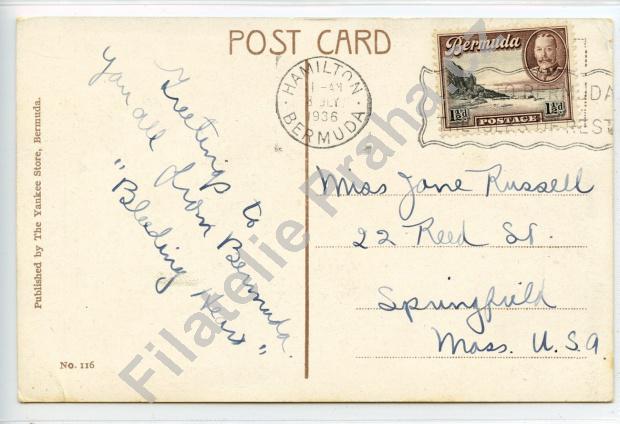 POST CARD
HAMILTON
BERMUDA
1936
Bermuda
1½d 1½d
POSTAGE
BERMUDA
Published by The Yankee Store, Bermuda.
Greetings to
you all from Bermuda.
"Bleeding Heart"
Miss Jane Russell
22 Reed St.
Springfield
Mass. U.S.A
No. 116
Filatelie Praha.cz